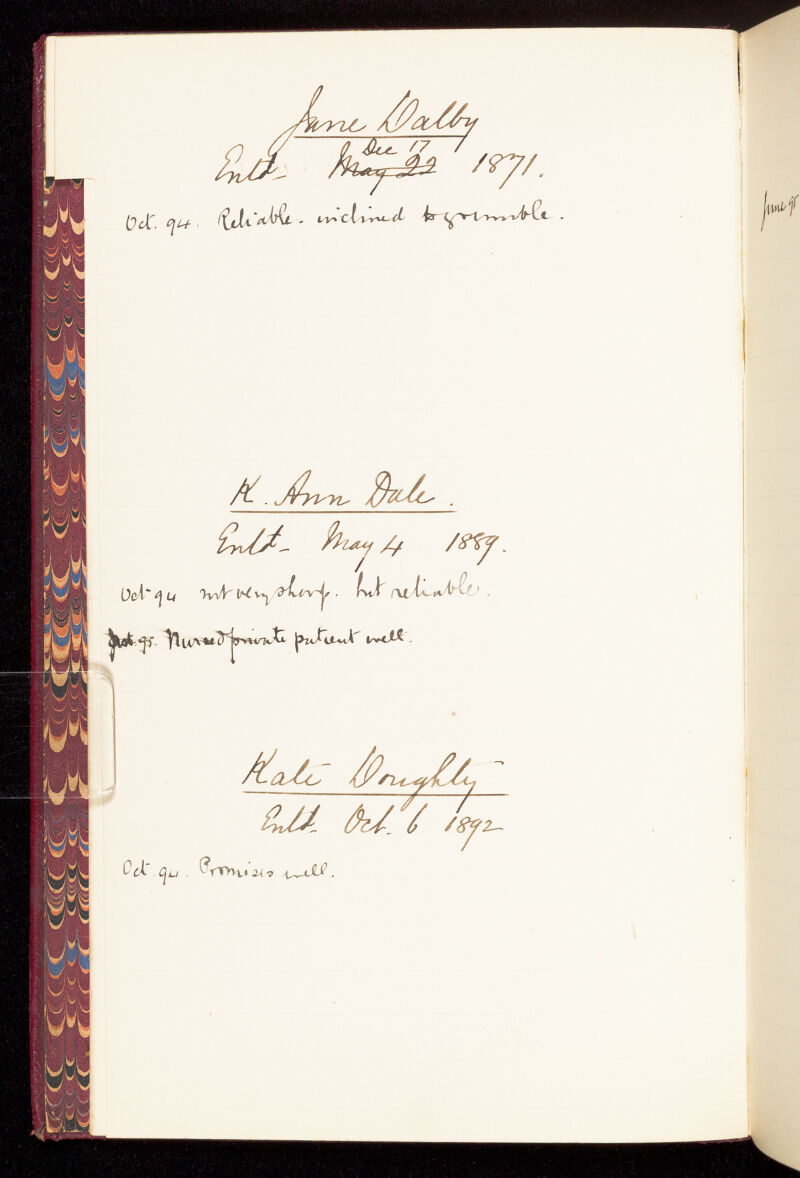 Jane Dalby
Dec 17
Entd - May 22 1871.
Oct. 94. Reliable - inclined to grumble.
K. Ann Dale.
Entd - May 4 1889.
Oct 94 not very sharp. but reliable.
95. Nursed private patient well.
Kate Doughty
Entd. Oct. 6 1892
Oct. 94. Promises well.
June 95